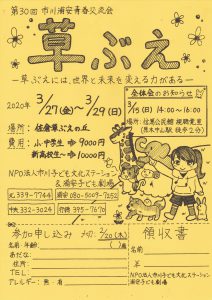 第30回 市川浦安青春交流会
草ぶえ
―草ぶえには、世界と未来を変える力がある―
2020年
3/27(金)～3/29(日)
場所: 佐倉草ぶえの丘
費用: 小中学生 9000円
新高校生～ 10000円
全体会のお知らせ
3/15(日) 14:00～16:00
NPO法人市川子ども文化ステーション
&浦安子ども劇場
北 339-7744
浦安 080-5009-7252
中央 332-3024
行徳 395-7670
参加申し込み
2/20(木)
名前:
年齢(
あだ名:
住所:
TEL:
アレルギー: 無・有(
領収書
¥
NPO法人市川子ども文化ステーション
浦安子ども劇場